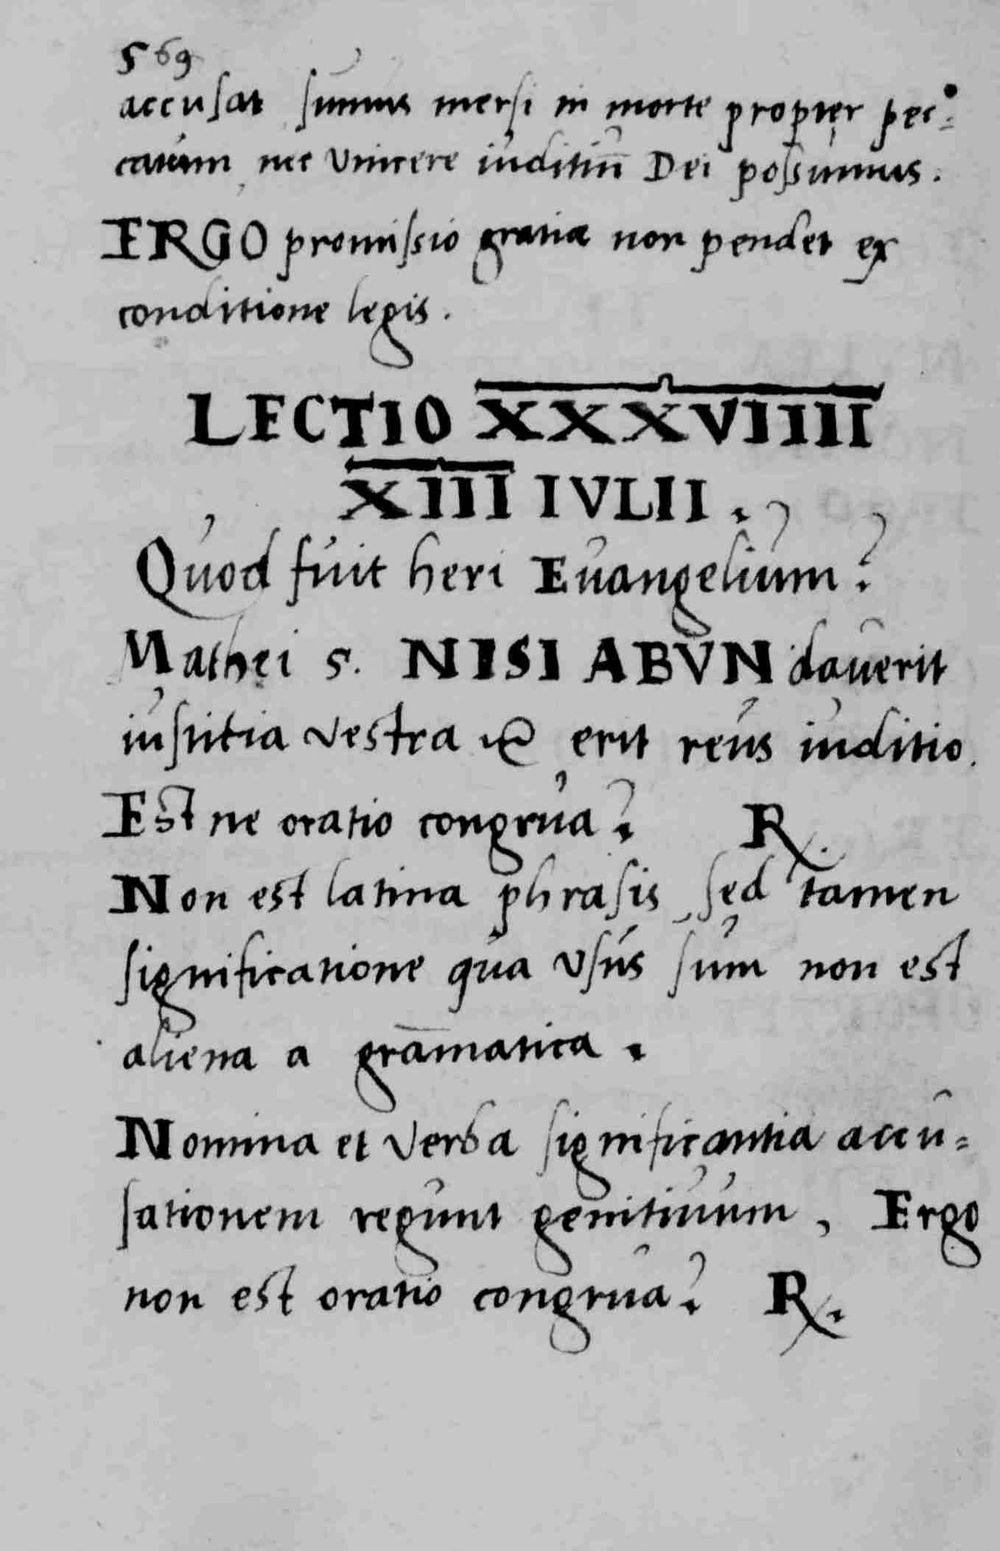 569
accusat sumus mersi in morte propter pec=
catum, nec vincere iuditiū Dei possumus.
ERGO promissio gratiæ non pendet ex
conditione legis.
LECTIO XXXVIIII
XIII IVLII.
Quod fuit heri Euangelium?
Mathei 5. NISI ABVN dauerit
iustitia vestra &c erit reus iuditio.
Est ne oratio congrua? R.
Non est latina phrasis sed tamen
significatione qua usus sum non est
aliena a grāmatica.
Nomina et verba significantia accu=
sationem regunt genitiuum, Ergo
non est oratio congrua? R.